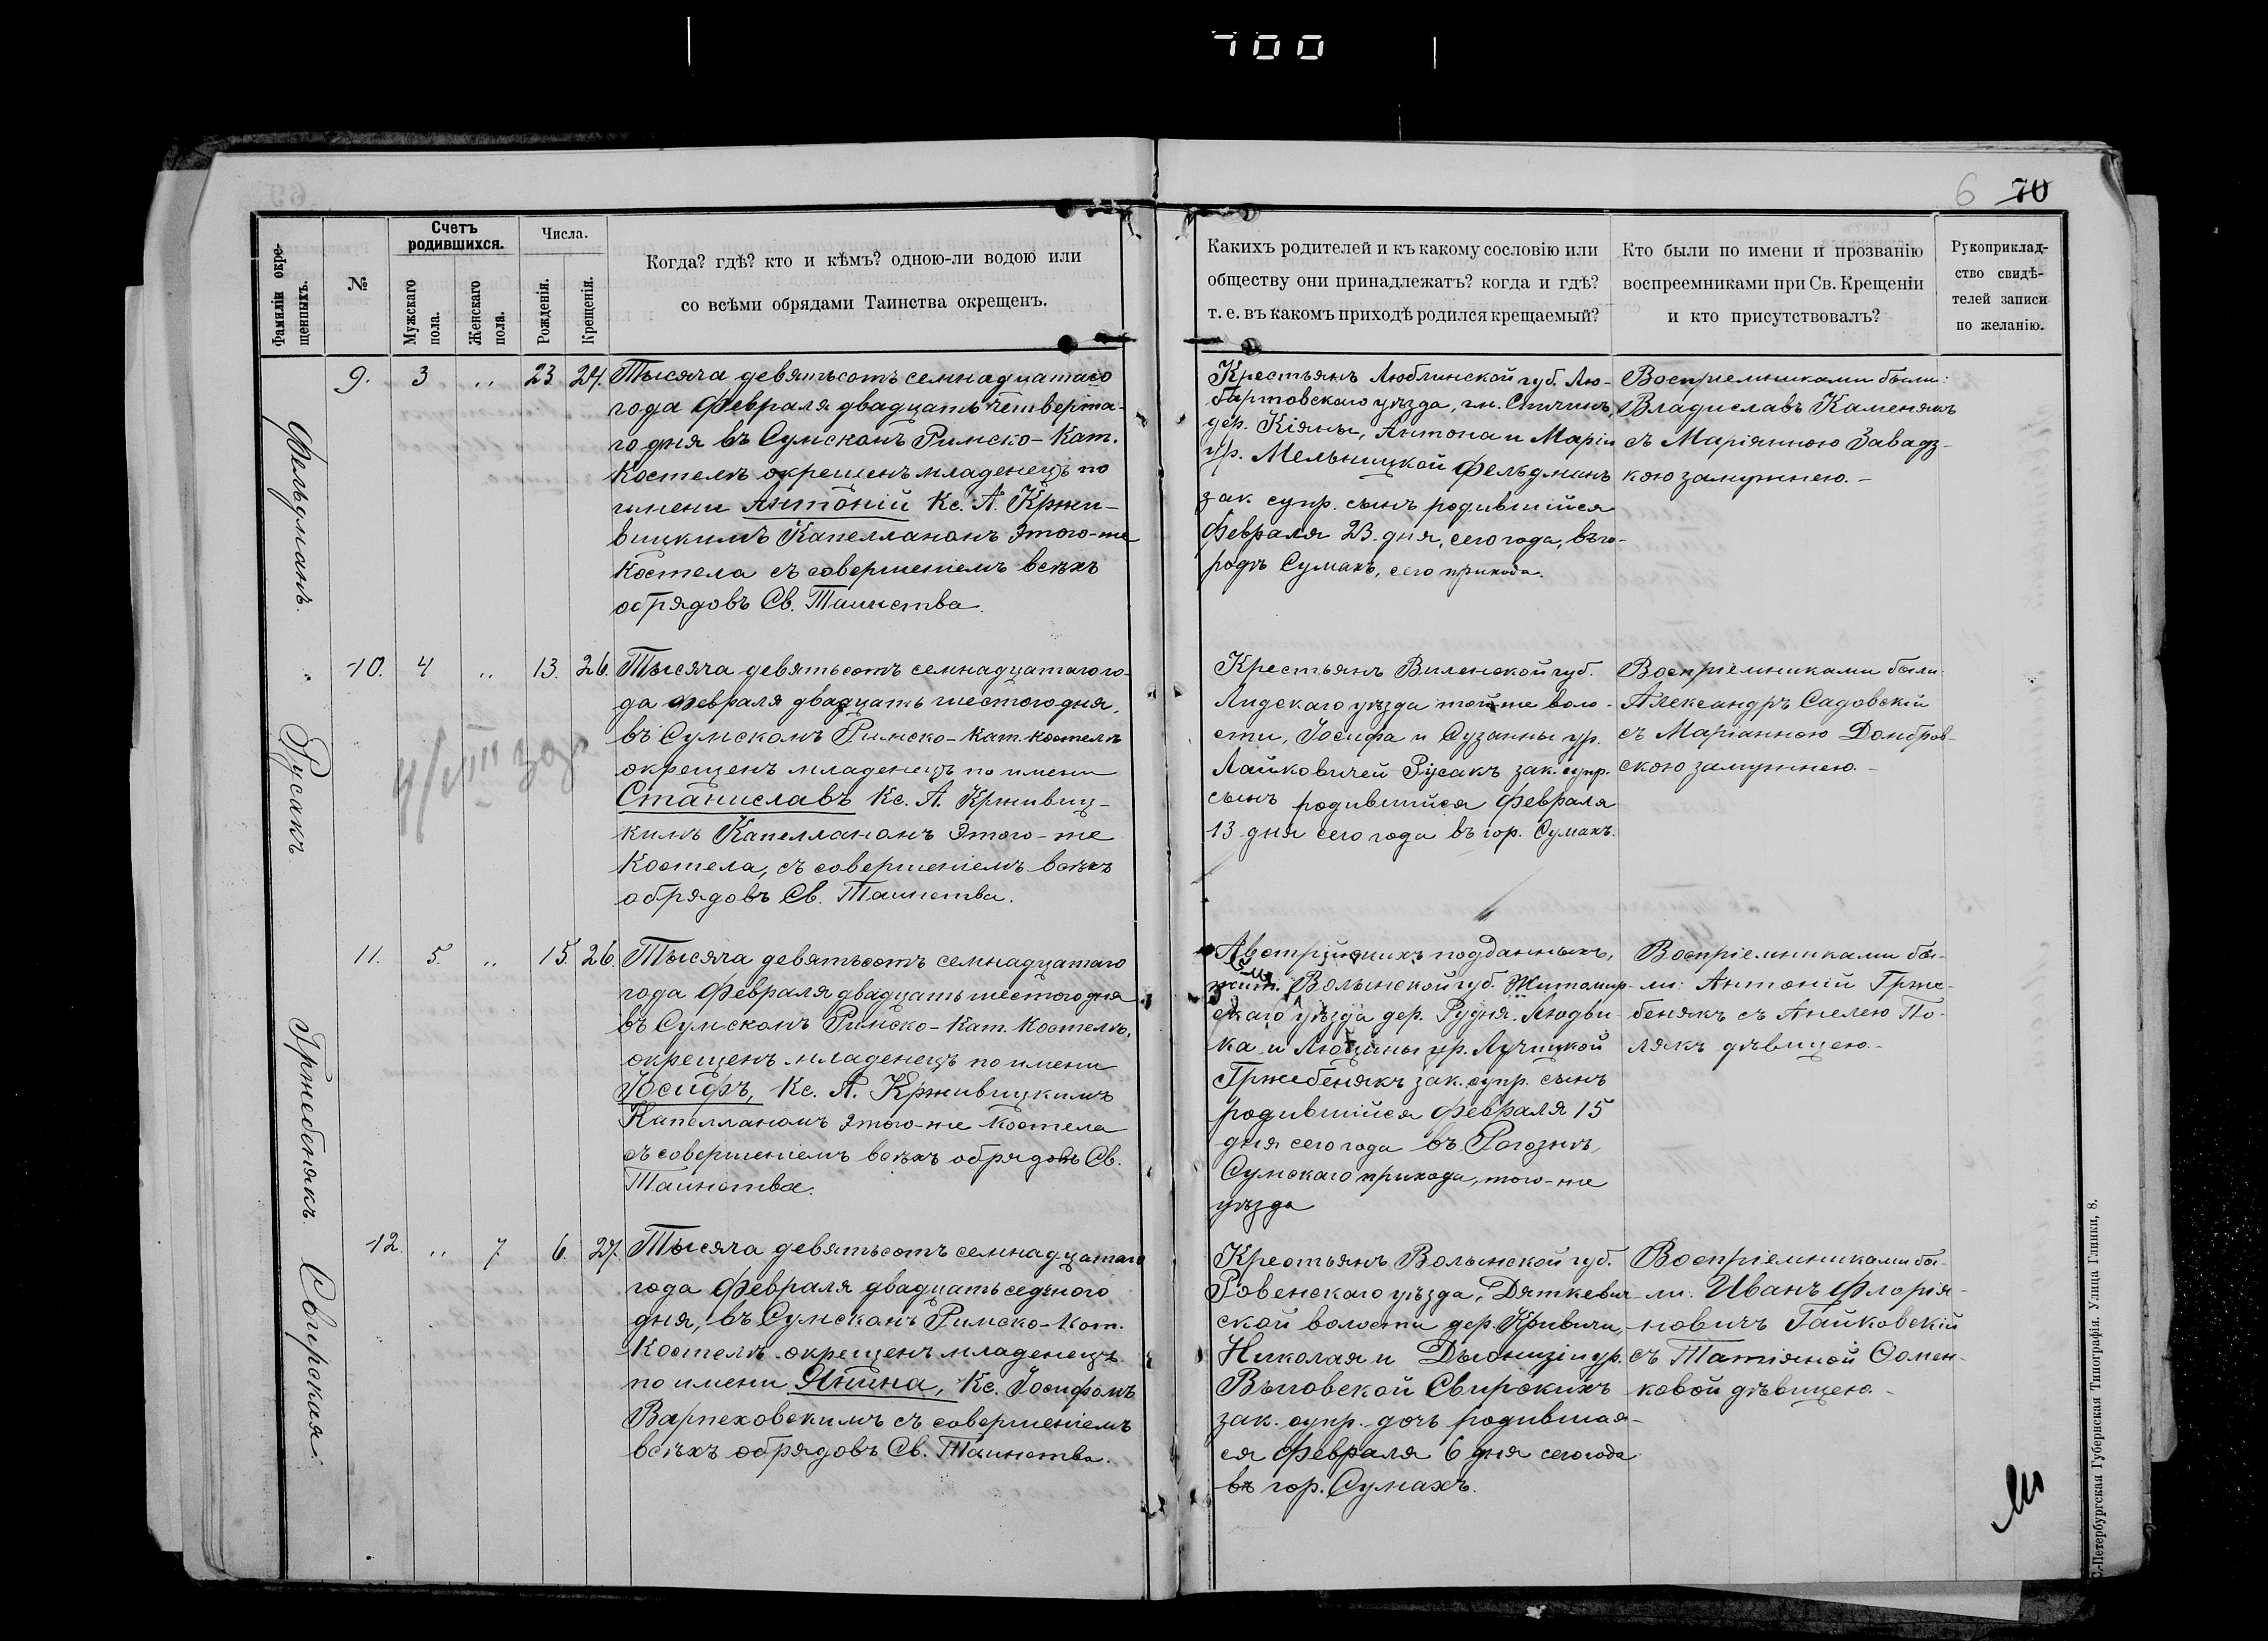 700
6 70
Фамиліи окре-
щенныхъ.
№
Счетъ
родившихся.
Мужскаго
пола.
Женскаго
пола.
Числа.
Рожденія.
Крещенія.
Когда? гдѣ? кто и кѣмъ? одною-ли водою или
со всѣми обрядами Таинства окрещенъ.
Какихъ родителей и къ какому сословію или
обществу они принадлежатъ? когда и гдѣ?
т. е. въ какомъ приходѣ родился крещаемый?
Кто были по имени и прозванію
воспреемниками при Св. Крещеніи
и кто присутствовалъ?
Рукоприклад-
ство свидѣ-
телей записи
по желанію.
Фельдманъ.
9. 3 „ 23. 24.
Тысяча девятьсотъ семнадцатаго
года февраля двадцать четверта-
го дня въ Сумскомъ Римско-Кат.
Костелѣ окрещенъ младенецъ по
имени Антоній Кс. А. Кржи-
вицкимъ Капелланомъ этого-же
Костела съ совершеніемъ всѣхъ
обрядовъ Св. Таинства.
Крестьянъ Люблинской губ. Лю-
бартовскаго уѣзда, гм.
дер. Кіяны, Антона и Маріи
ур. Мельницкой Фельдманъ
зак. супр. сынъ родившійся
февраля 23 дня, сего года, въ го-
родѣ Сумахъ, сего прихода.
Воспріемниками были:
Владиславъ Каменякъ
съ Маріянною Завадз-
кою замужнею.-
Русакъ
10. 4 „ 13. 26.
Тысяча девятьсотъ семнадцатаго го-
да февраля двадцать шестого дня,
въ Сумскомъ Римско-Кат. Костелѣ
окрещенъ младенецъ по имени
Станиславъ Кс. А. Кржывиц-
кимъ Капелланомъ этого-же
Костела, съ совершеніемъ всѣхъ
обрядовъ Св. Таинства.
Крестьянъ Виленской губ.
Лидскаго уѣзда той-же воло-
сти, Іосифа и Сузанны ур.
Лайковичей Русакъ зак. супр.
сынъ родившійся февраля
13 дня сего года въ гор. Сумахъ.
Воспріемниками были:
Александръ Садовскій
съ Маріанною Домбров-
скою замужнею.-
Гржебенякъ.
11. 5. „ 15. 26.
Тысяча девятьсотъ семнадцатаго
года февраля двадцать шестого дня
въ Сумскомъ Римско-Кат. Костелѣ,
окрещенъ младенецъ по имени
Іосифъ, Кс. А. Кржывицкимъ
Капелланомъ этого-же Костела
съ совершеніемъ всѣхъ обрядовъ Св.
Таинства.
Австрійскихъ подданныхъ,
жит. Волынской губ. Житомир-
скаго уѣзда дер. Рудня. Людви-
ка и Люцины ур. Лучицкой
Гржебенякъ зак. супр. сынъ
родившійся февраля 15
дня сего года въ Рогознѣ,
Сумскаго прихода, того-же
уѣзда
Воспріемниками бы-
ли: Антоній Грже-
бенякъ съ Анелею По-
лякъ дѣвицею.-
Свирская.
12. „ 7 6. 27.
Тысяча девятьсотъ семнадцатаго
года февраля двадцать седьмого
дня, въ Сумскомъ Римско-Кат.
Костелѣ окрещенъ младенецъ
по имени Янина, Кс. Іосифомъ
Варпеховскимъ съ совершеніемъ
всѣхъ обрядовъ Св. Таинства.
Крестьянъ Волынской губ.
Ровенскаго уѣзда, Дяткевич-
ской волости дер. Кривичи,
Николая и Дыонизіи ур.
Свирскихъ
зак. супр. дочь родившая-
ся февраля 6 дня сего года
въ гор. Сумахъ.
Воспріемниками бы-
ли: Иванъ Флорія-
новичъ Гайковскій
съ Татіяной
ковой дѣвицею.-
С.-Петербургская Губернская Типографія. Улица Глинки, 8.